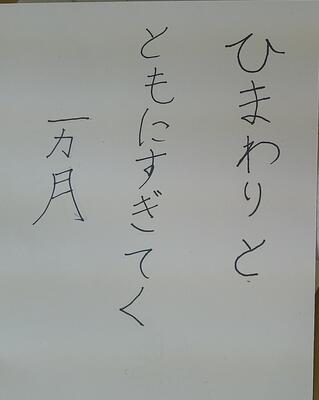 ひまわりと
ともにすぎてく
一カ月